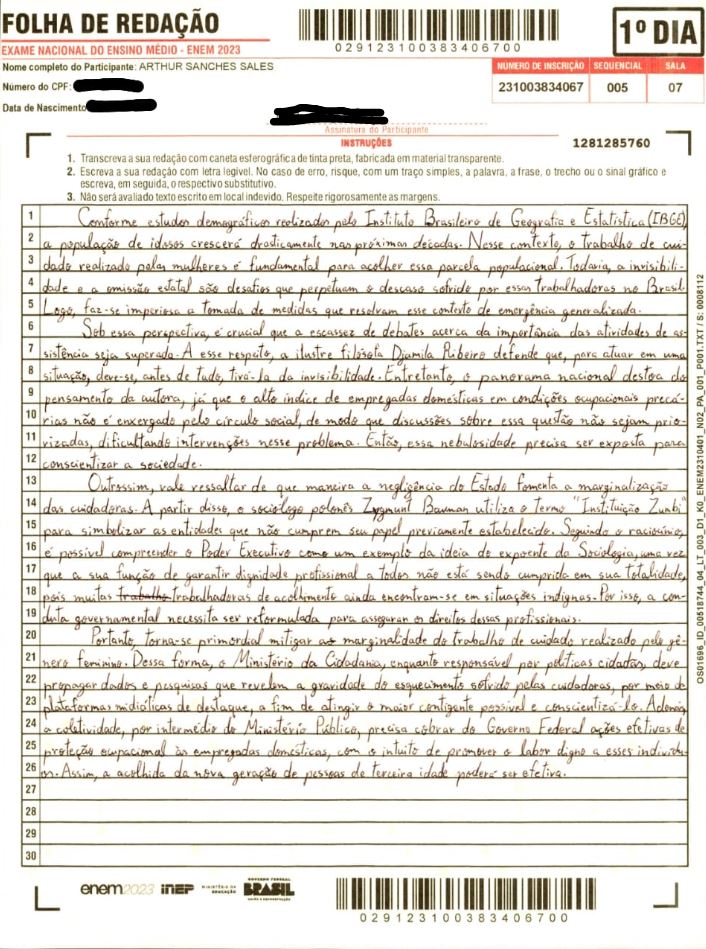 FOLHA DE REDAÇÃO
EXAME NACIONAL DO ENSINO MÉDIO - ENEM 2023
029123100383406700
1º DIA
Nome completo do Participante: ARTHUR SANCHES SALES
Número do CPF:
Data de Nascimento
NÚMERO DE INSCRIÇÃO SEQUENCIAL SALA
231003834067 005 07
Assinatura do Participante
INSTRUÇÕES
1281285760
1. Transcreva a sua redação com caneta esferográfica de tinta preta, fabricada em material transparente.
2. Escreva a sua redação com letra legível. No caso de erro, risque, com um traço simples, a palavra, a frase, o trecho ou o sinal gráfico e
escreva, em seguida, o respectivo substitutivo.
3. Não será avaliado texto escrito em local indevido. Respeite rigorosamente as margens.
1 Conforme estudos demográficos realizados pelo Instituto Brasileiro de Geografia e Estatística (IBGE),
2 a população de idosos crescerá drasticamente nas próximas décadas. Nesse contexto, o trabalho de cui-
3 dado realizado pelas mulheres é fundamental para acolher essa parcela populacional. Todavia, a invisibili-
4 dade e a omissão estatal são desafios que perpetuam o descaso sofrido por essas trabalhadoras no Brasil.
5 Logo, faz-se imperiosa a tomada de medidas que resolvam esse contexto de emergência generalizada.
6 Sob essa perspectiva, é crucial que a escassez de debates acerca da importância das atividades de as-
7 sistência seja superada. A esse respeito, a ilustre filósofa Djamila Ribeiro defende que, para atuar em uma
8 situação, deve-se, antes de tudo, tirá-la da invisibilidade. Entretanto, o panorama nacional destoa do
9 pensamento da autora, já que o alto índice de empregadas domésticas em condições ocupacionais precá-
10 rias não é enxergado pelo círculo social, de modo que discussões sobre essa questão não sejam prio-
11 rizadas, dificultando intervenções nesse problema. Então, essa nebulosidade precisa ser exposta para
12 conscientizar a sociedade.
13 Outrossim, vale ressaltar de que maneira a negligência do Estado fomenta a marginalização
14 das cuidadoras. A partir disso, o sociólogo polonês Zygmunt Bauman utiliza o termo "Instituição Zumbi"
15 para simbolizar as entidades que não cumprem seu papel previamente estabelecido. Seguindo o raciocínio,
16 é possível compreender o Poder Executivo como um exemplo da ideia do expoente da Sociologia, uma vez
17 que a sua função de garantir dignidade profissional a todos não está sendo cumprida em sua totalidade,
18 pois muitas trabalho trabalhadoras de acolhimento ainda encontram-se em situações indignas. Por isso, a con-
19 duta governamental necessita ser reformulada para assegurar os direitos dessas profissionais.
20 Portanto, torna-se primordial mitigar a marginalidade do trabalho de cuidado realizado pelo gê-
21 nero feminino. Dessa forma, o Ministério da Cidadania, enquanto responsável por políticas cidadãs, deve
22 propagar dados e pesquisas que revelem a gravidade do esquecimento sofrido pelas cuidadoras, por meio de
23 plataformas midiáticas de destaque, a fim de atingir o maior contigente possível e conscientizá-lo. Ademais,
24 a coletividade, por intermédio do Ministério Público, precisa cobrar do Governo Federal ações efetivas de
25 proteção ocupacional às empregadas domésticas, com o intuito de promover o labor digno a esses indivídu-
26 os. Assim, a acolhida da nova geração de pessoas de terceira idade poderá ser efetiva.
27
28
29
30
OS01696_ID_00518744_04_LT_003_D1_K0_ENEM2310401_N02_PA_001_P001.TXT / S: 0008112
enem2023 inep MINISTÉRIO DA EDUCAÇÃO GOVERNO FEDERAL BRASIL UNIÃO E RECONSTRUÇÃO
029123100383406700